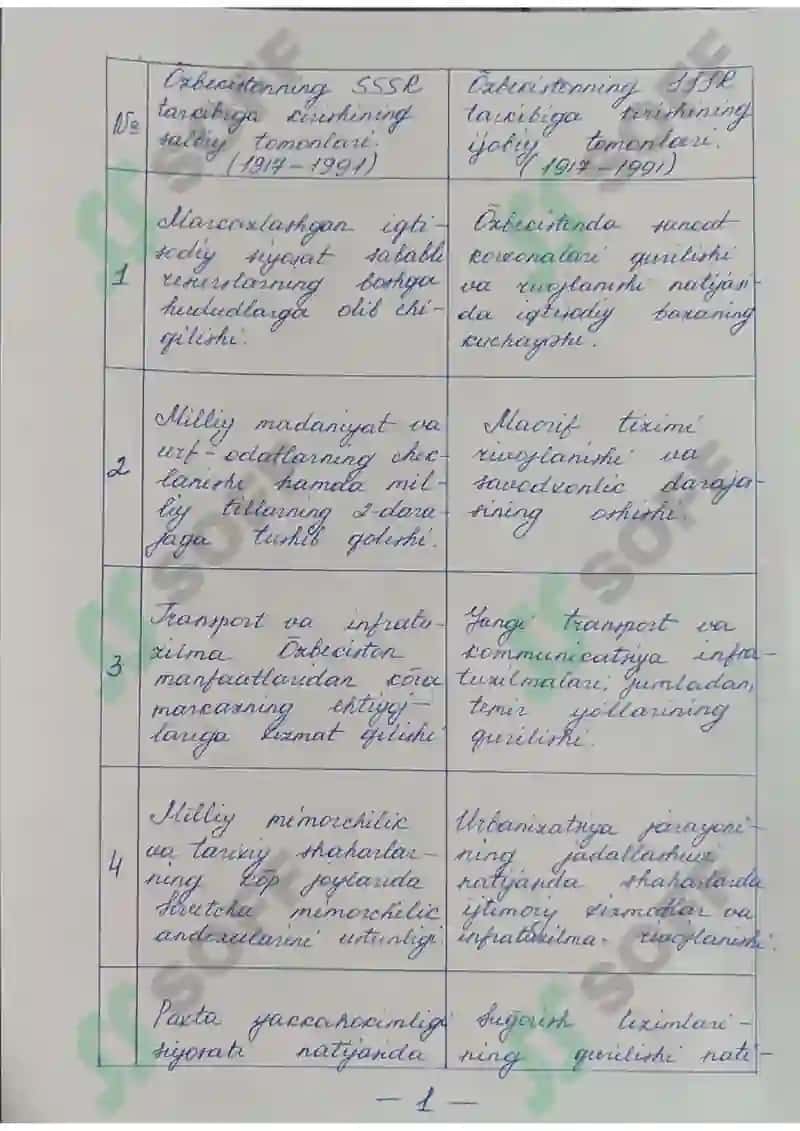 №
Özbekistonning SSSR
tarkibiga kirishining
salbiy tomonlari.
(1917-1991)
Özbekistonning SSSR
tarkibiga kirishining
ijobiy tomonlari.
(1917-1991)
1
Markazlashgan iqti-
sodiy siyosat sababli
resurslarning boshqa
hududlarga olib chi-
qilishi.
Özbekistonda sanoat
korxonalari qurilishi
va rivojlanishi natijasi-
da iqtisodiy bazaning
kuchayishi.
2
Milliy madaniyat va
urf-odatlarning chek-
lanishi hamda mil-
liy tillarning 2-dara-
jaga tushib qolishi.
Maorif tizimi
rivojlanishi va
savodxonlik daraja-
sining oshishi.
3
Transport va infratu-
zilma Özbekiston
manfaatlaridan köra
markazning ehtiyoj-
lariga xizmat qilishi
Yangi transport va
kommunikatsiya infra-
tuzilmalari, jumladan,
temir yöllarining
qurilishi.
4
Milliy mimorchilik
va tarixiy shaharlar-
ning köp joylarida
Sovetcha mimorchilik
andozalarini ustunligi.
Urbanizatsiya jarayoni-
ning jadallashuvi
natijanda shaharlarda
ijtimoiy xizmatlar va
infratuzilma. rivojlanishi.
Paxta yakkahokimligi
siyosati natijanda
Suğorish tizimlari-
ning qurilishi nati-
- 1 -
SOFF
SOFF
SOFF
SOFF
SOFF
SOFF